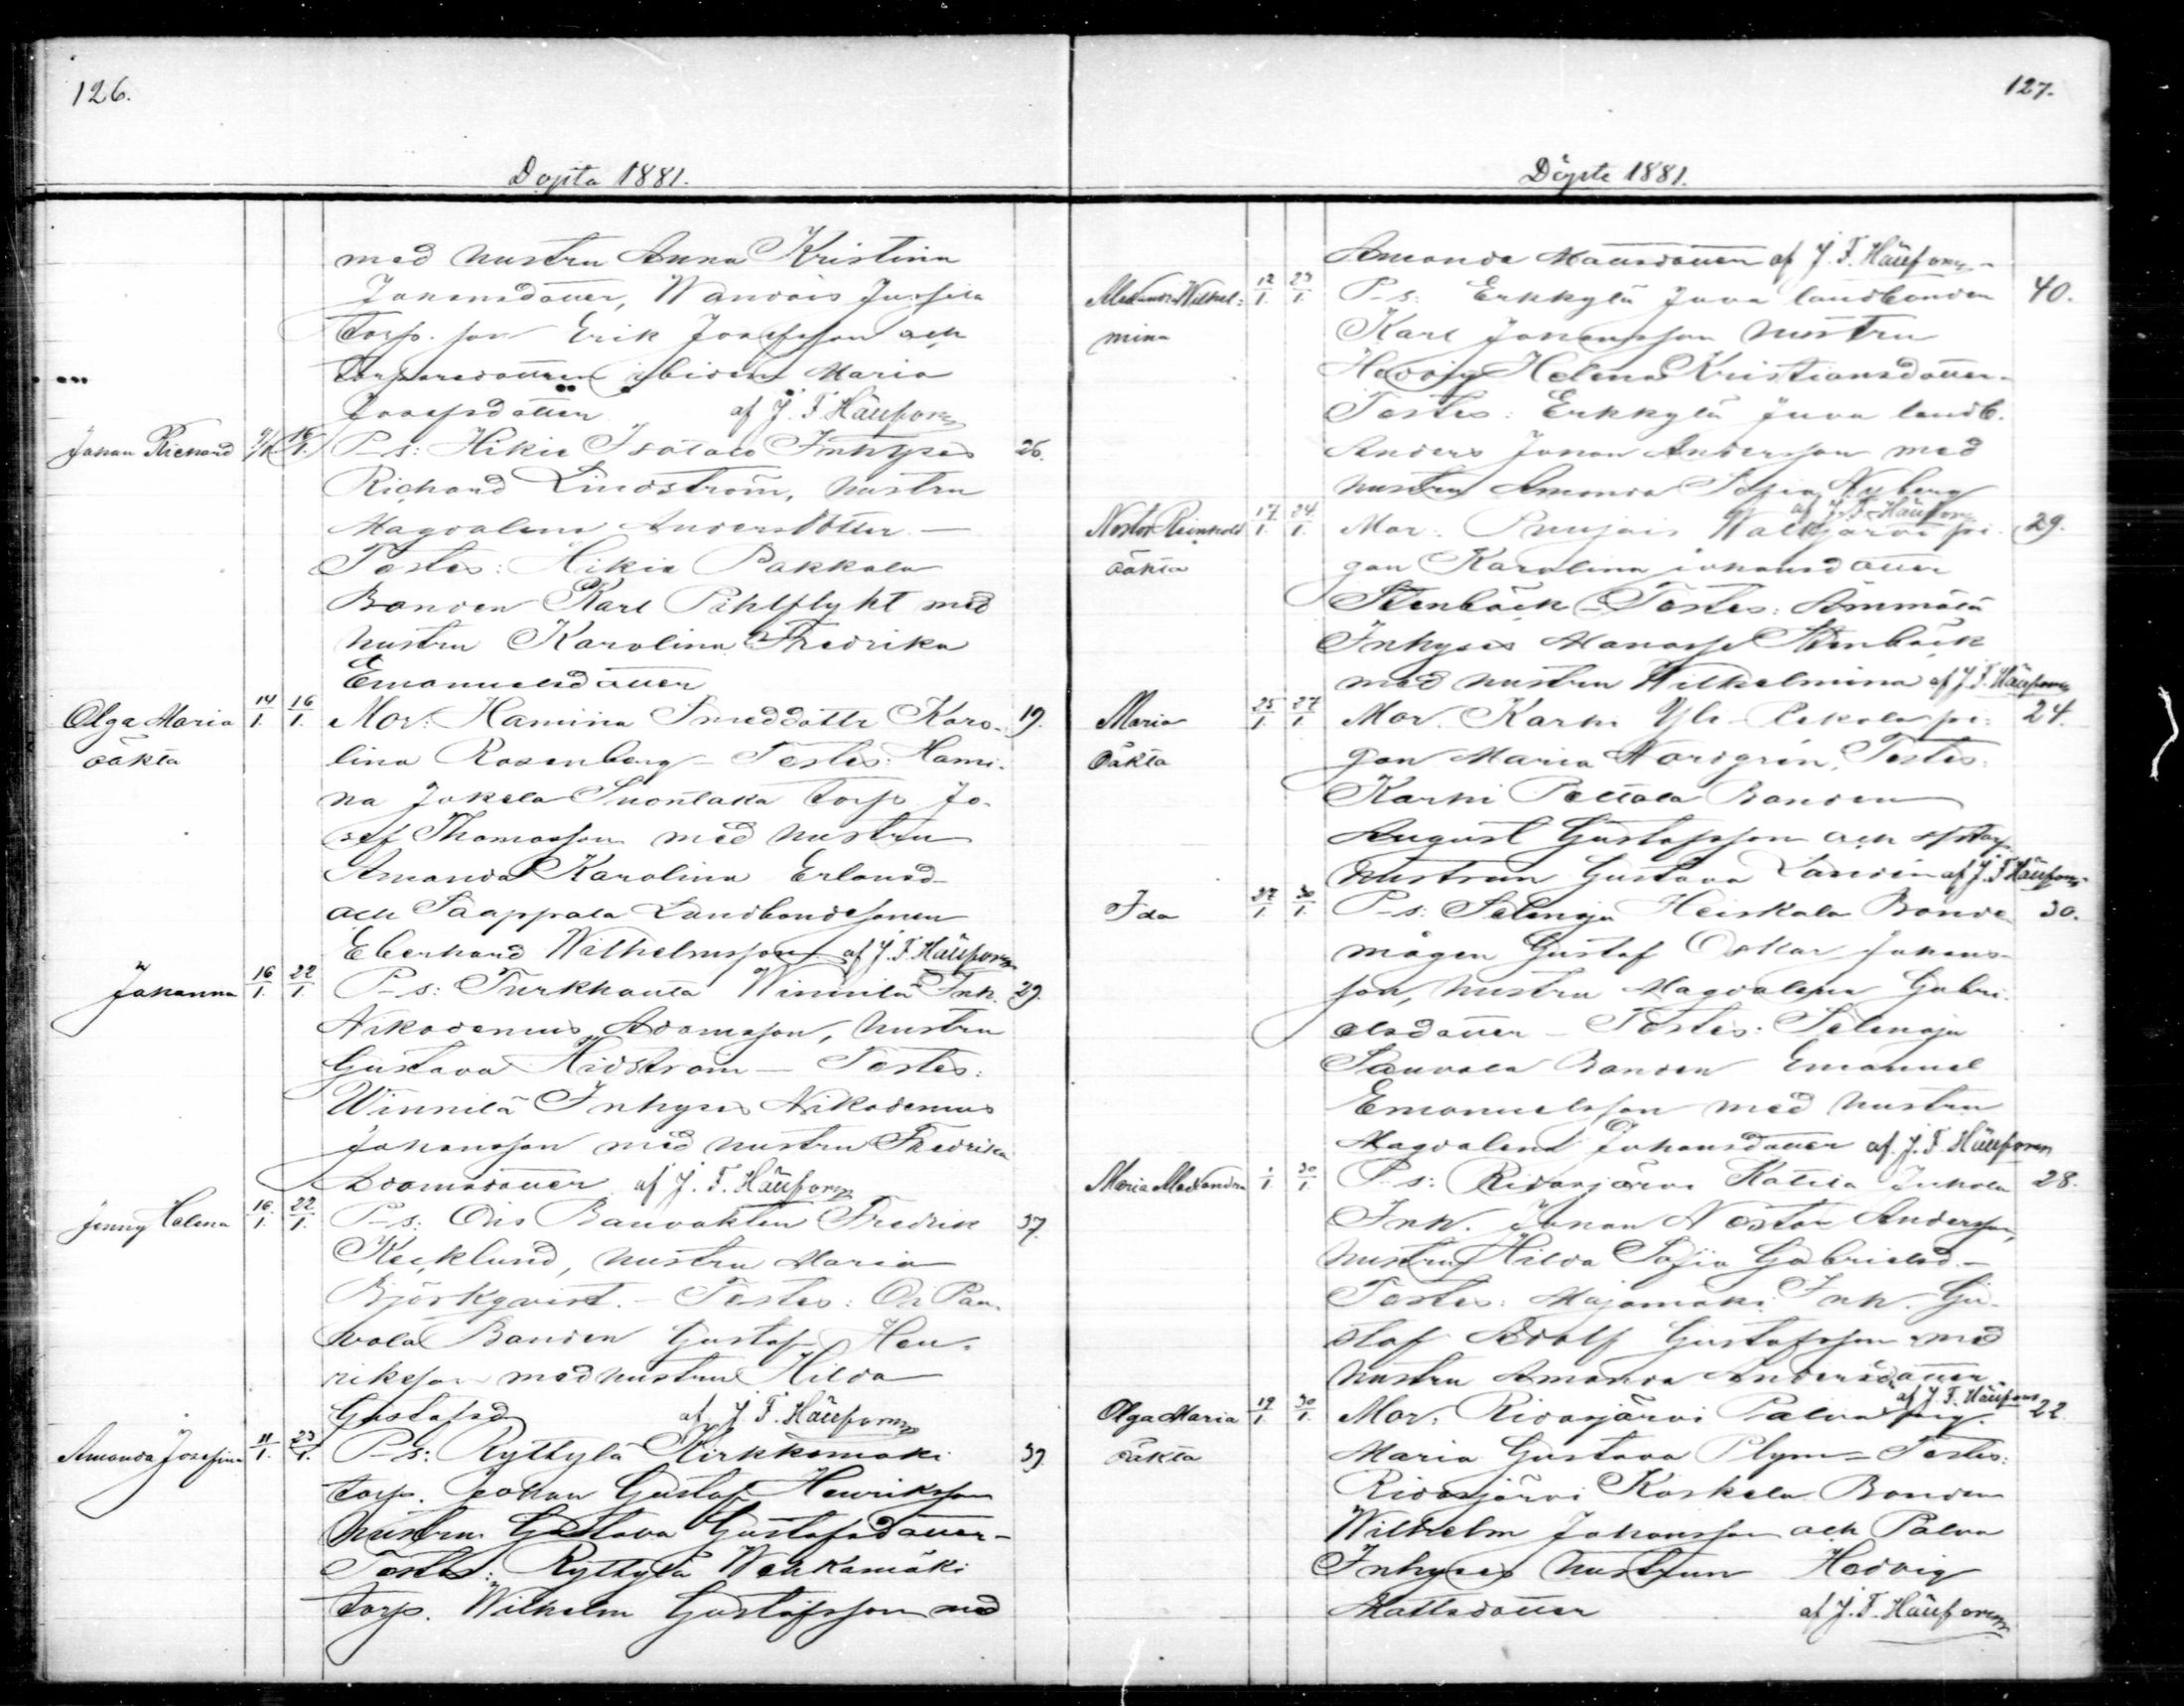 126.
Döpta 1881.
med hustru Anna Kristina
Johansdotter, Wandois Jussila
torp. son Erik Josefsson och
torparedottren ibidem Maria
Josefsdotter af J. F. Hällfors
Johan Richard 9/1. 16/1. P-s: Hikiä Isotalo Inhyses 26.
Richard Lindström, hustru
Magdalena Andersdotter. —
Testes: Hikiä Pakkala
Bonden Karl Pihlflyht med
hustru Karolina Fredrika
Emanuelsdotter
Olga Maria 14/1. 16/1. Mor: Hamina Smeddottr Karo- 19.
oäkta lina Rosenberg – Testes: Hami-
na Jokela Suontaka torp. Jo-
sef Thomasson med hustru
Amanda Karolina Erlandsd-
och Saappala Landbondesonen
Eberhard Wilhelmsson af J. F. Hällfors
Johanna 16/1. 22/1. P-s: Turkhauta Winnilä Inh. 29.
Nikodemus Adamsson, hustru
Gustava Hidström – Testes:
Winnilä Inhyses Nikodemus
Johansson med hustru Fredrika
Adamsdotter af J. F. Hällfors
Jenny Helena 16/1. 22/1. P-s: Ois Banvakten Fredrik 37.
Kecklund, hustru Maria
Björkqvist. – Testes: Oi Pau-
vola Bonden Gustaf Hen-
riksson med hustru Hilda
Gustafsd af J. F. Hällfors
Amanda Josefina 11/1. 23/1. P-s: Ryttylä Kirkkomäki 39.
torp. Johan Gustaf Henriksson
hustru Gustava Gustafsdotter –
Testes: Ryttylä Wehkamäki
torp. Wilhelm Gustafsson med
127.
Döpte 1881.
Amanda Mattsdotter af J. F. Hällfors
Alexandra Wilhel- 12/1. 23/1. P-s: Erkkylä Juva landbonden 40.
mina Karl Johansson hustru
Hedvig Helena Kristiansdotter.
Testes: Erkkylä Juva landb.
Anders Johan Andersson med
hustru Amanda Sofia Nyberg
af J. F. Hällfors
Nestor Reinhold 17/1. 24/1. Mor: Puujais Walkjärvi pi- 29.
oäkta gan Karolina Johansdotter
Stenbäck – Testes: Ämmälä
Inhyses Manasse Stenbäck
med hustru Wilhelmina af J. F. Hällfors
Maria 25/1. 27/1. Mor. Karhi Yli-Pekola pi- 24.
oäkta gan Maria Nordgrén. Testes:
Karhi Pattala Bonden
August Gustafsson och
hustrun Gustava Landén af J. F. Hällfors
Ida 27/1. 30/1. P-s: Selänoja Heiskala Bonde- 30.
mågen Gustaf Oskar Johans-
son, hustru Magdalena Gabri-
elsdotter – Testes: Selänoja
Sauvala Bonden Emanuel
Emanuelsson med hustru
Magdalena Johansdotter af J. F. Hällfors
Maria Alexandra 30/1. P-s: Ridasjärvi Katila Juhola 28.
Inh. Johan Nestor Andersson,
hustru Hilda Sofia Gabrielsd. –
Testes: Majamäki Inh. Gu-
staf Adolf Gustafsson med
hustru Amanda Andersdotter.
af J. F. Hällfors
Olga Maria 19/1. 30/1. Mor: Ridasjärvi Palva pig. 22.
oäkta Maria Gustava Plym – Testes:
Ridasjärvi Koskela Bonden
Wilhelm Johansson och Palva
Inhyses hustrun Hedvig
Mattsdotter af J. F. Hällfors